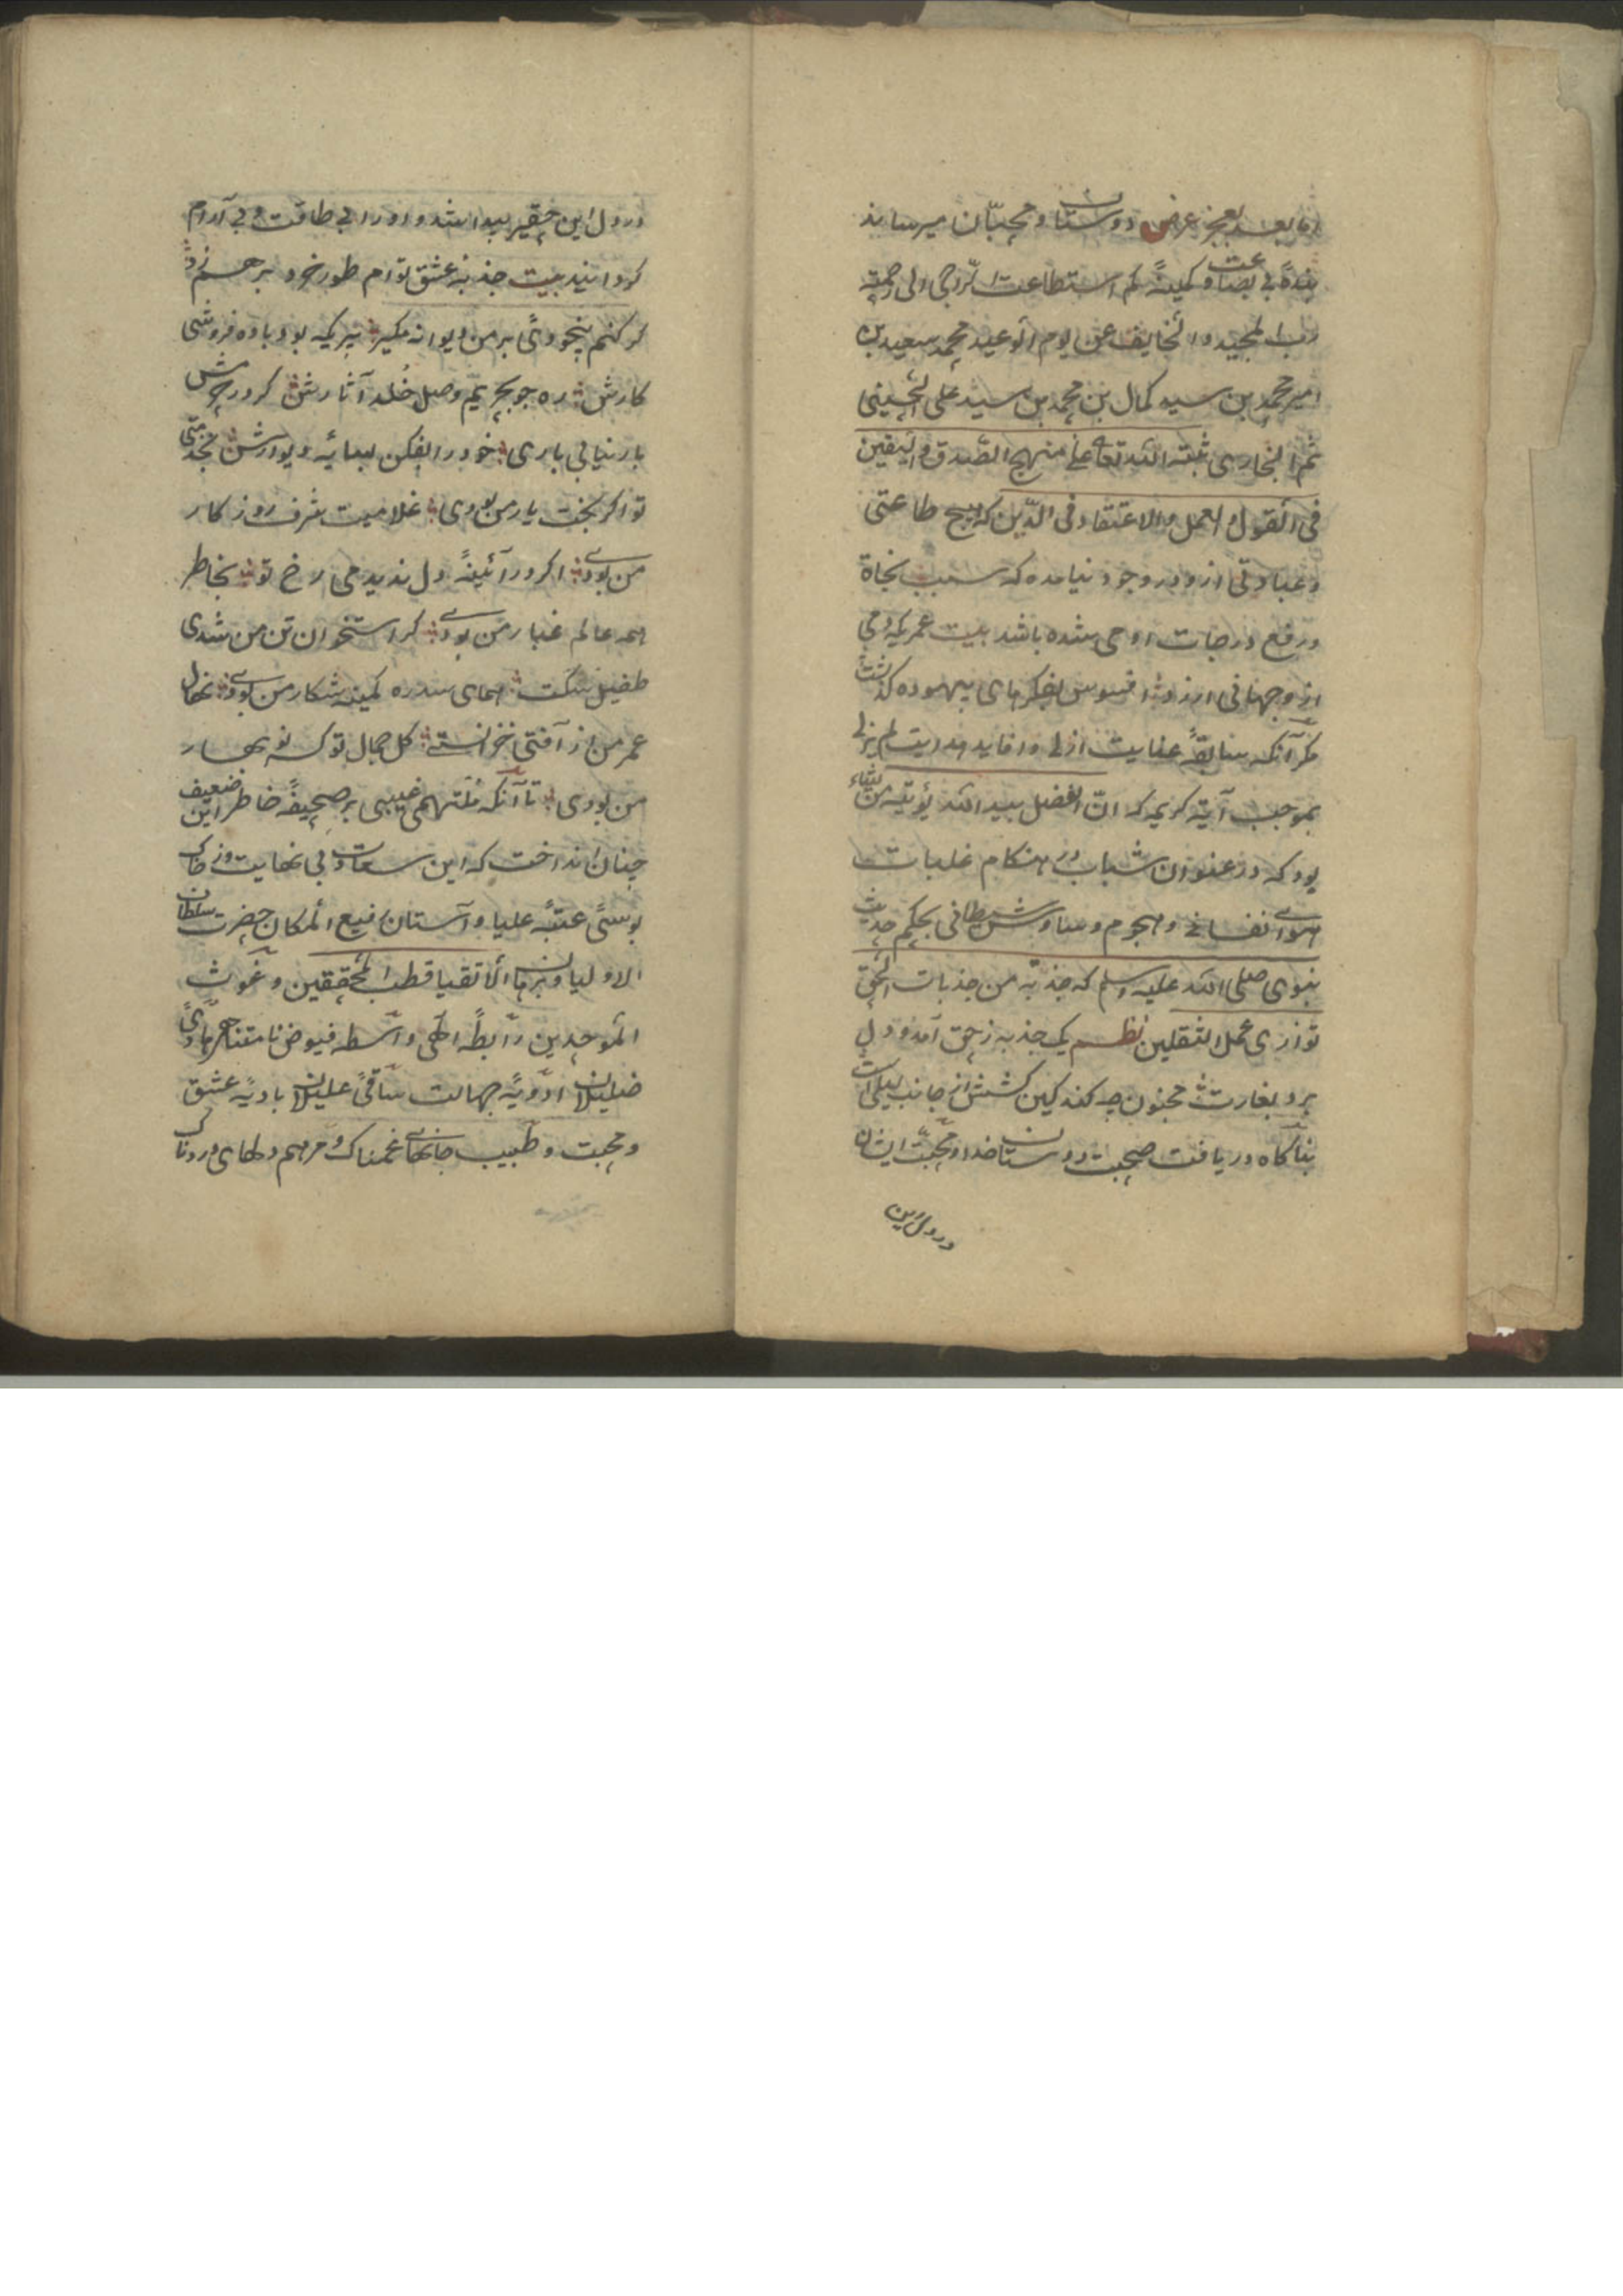 اما بعد بعجز عرض دوستان و محبّان میرساند
بندهٔ بی بضاعت و کمینهٔ کم استطاعت الرّاجی الی رحمة
رب المجید و الخایف عن یوم الوعید محمد سعید بن
امیر محمد بن سید کمال بن محمد بن سید علی الحسینی
ثم البخاری ثبته الله تعالی علی منهج الصّدق و الیقین
فی القول و العمل و الاعتقاد فی الدّین که هیچ طاعتی
و عبادتی ازو در وجود نیامده که سبب نجاة
و رفع درجات او می شده باشد بیت عمریکه دمی
ازو جهانی ارزد افسوس بفکرهای بیهوده گذشت
مگر آنکه سابقهٔ عنایت ازلی و افاید هدایت لم یزلی
بموجب آیة کریمه که انّ الفضل بید الله یؤتیه من یشاء
بود که در عنفوان شباب و در هنکام غلبات
هوای نفسانی و هجوم وساوس شیطانی بحکم حدیث
نبوی صلی الله علیه وسلم که جذبة من جذبات الحق
توازی عمل الثقلین نظم یک جذبه ز حق آمد و دل
برد بغارت مجنون چه کند کین کشش از جانب لیلی است
بناگاه دریافت صحبت دوستان خدا و محبّت ایشان
در دل این
در دل این حقیر پیدا شد و او را بی طاقت و بی آرام
گردانید بیت جذبهٔ عشق توام طور خرد بر هم زد
گر کنم بیخودیٔ بر من دیوانه مگیر پیریکه بود باده فروشی
کارش ره جو بحریم وصل خلد آثارش گر در حرمش
بار نیابی باری خود را بفکن بسایه دیوارش مجد متی
تو اگر بخت یار من بودی غلامیت شرف روزکار
من بودی اگر در آئینهٔ دل ندیدمی رخ تو بخاطر
همه عالم غبار من بودی گر استخوان تن من شدی
طفیل سگت همای سدره کمینه شکار من بودی نهال
عمر من از آفتی خزانسته گل جمال تو گر نو بهار
من بودی تا آنکه ملهم غیبی بر صحیفهٔ خاطر این ضعیف
چنان انداخت که این سعادت بی نهایت و ز خاک
بوسیٔ عتبهٔ علیا و آستان رفیع المکان حضرت سلطان
الاولیا و برهان الاتقیا قطب المحققین و غوث
الموحدین رابطهٔ الهی واسطه فیوض نامتناهی هادیٔ
ضلیلان ادویهٔ جهالت ساقیٔ علیلان بادیهٔ عشق
و محبت و طبیب جانهای غمناک و مرهم دلهای دردناک